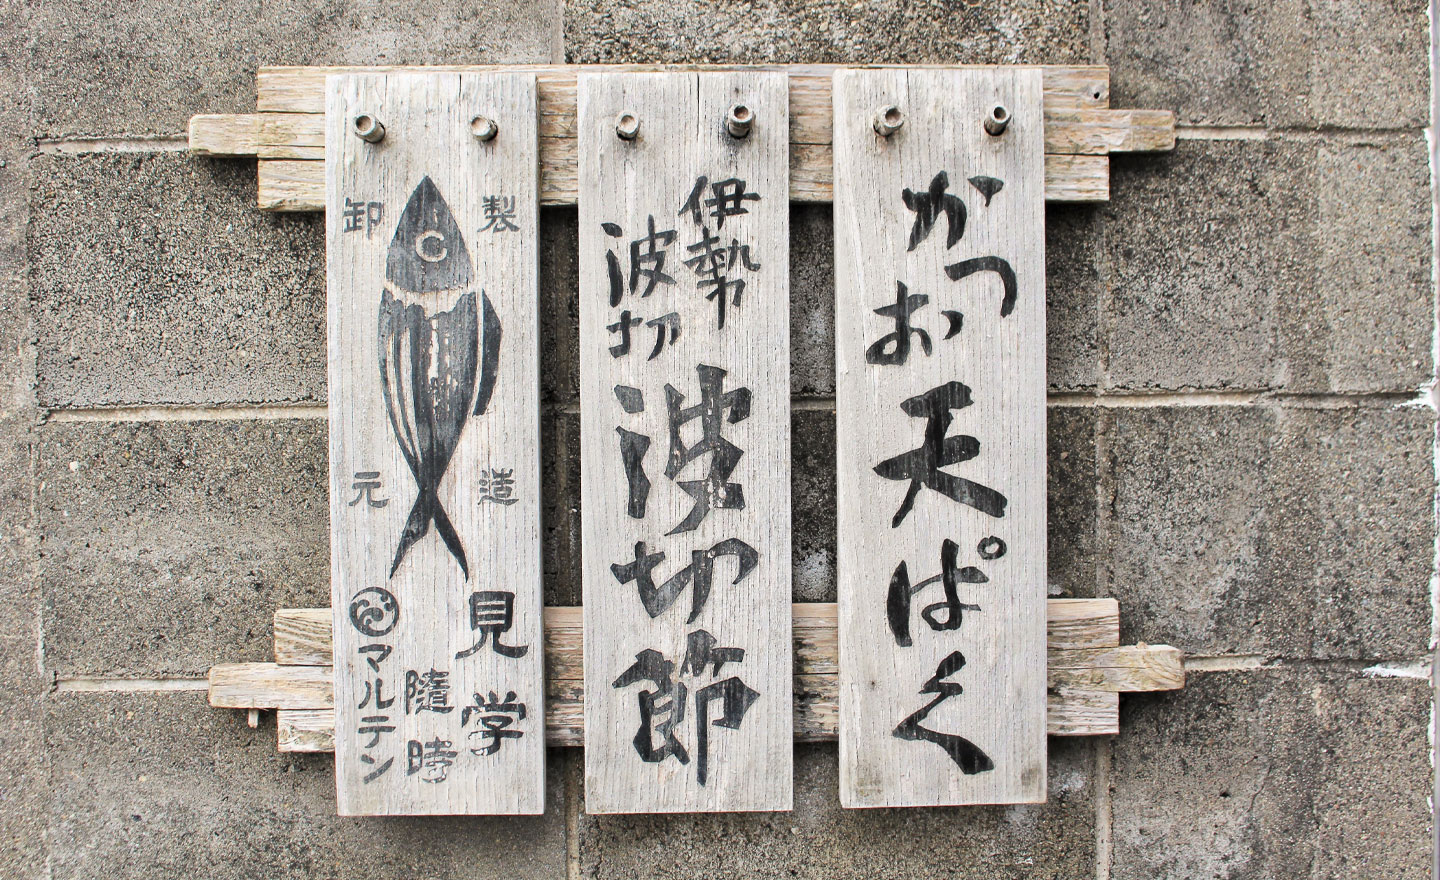 かつお
天ぱく
伊勢
波切
波切節
製造
卸元
見学
隨時
マルテン